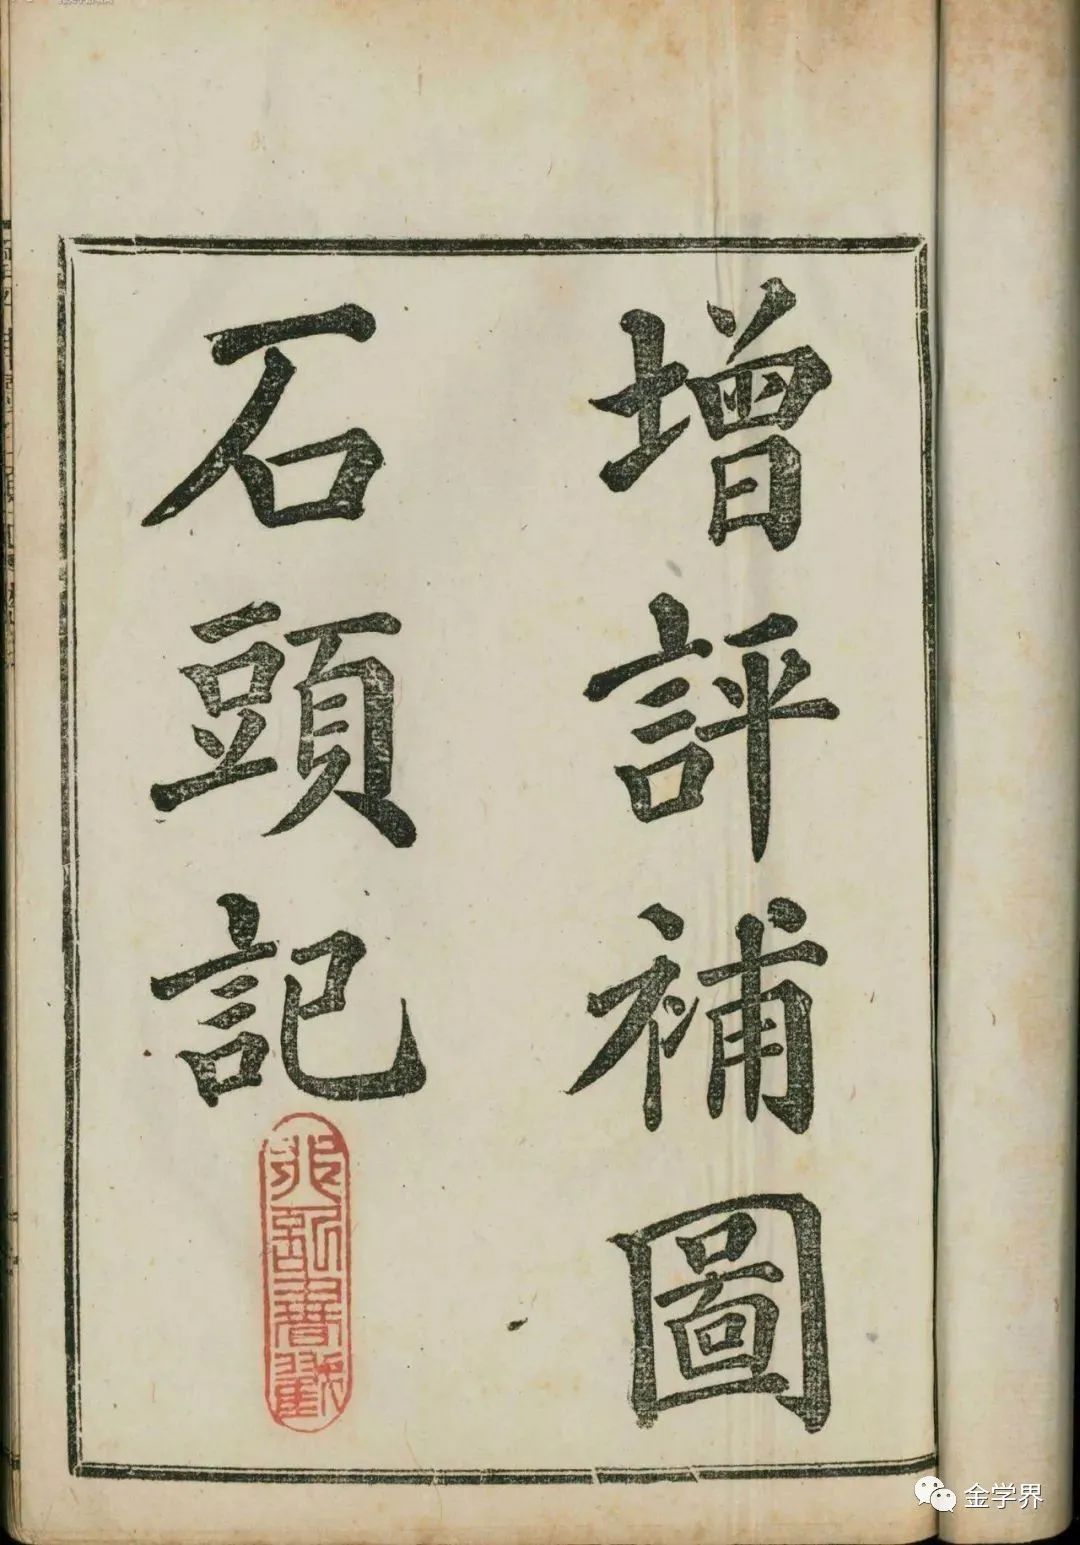 增評補圖
石頭記
金学界